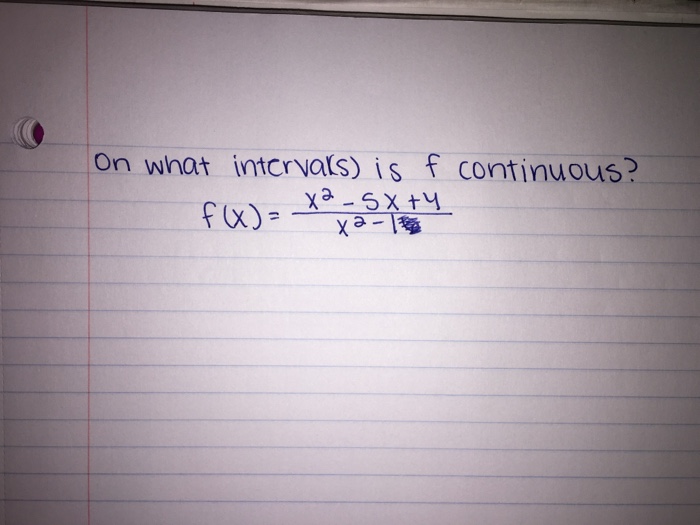 On what interval(s) is f continuous?
f(x) = x² - 5x + 4
x² - 1